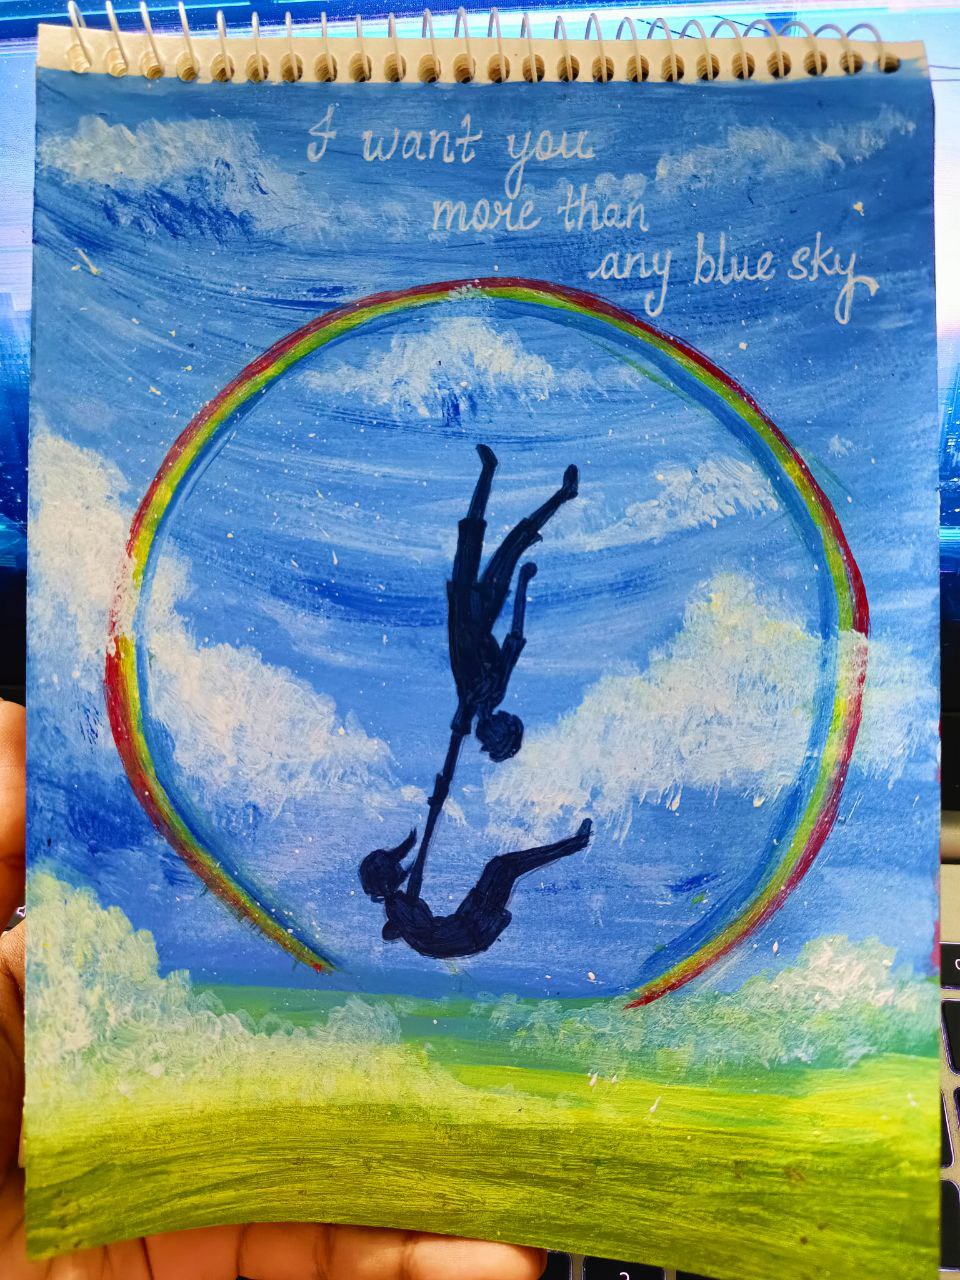 I want you
more than
any blue sky